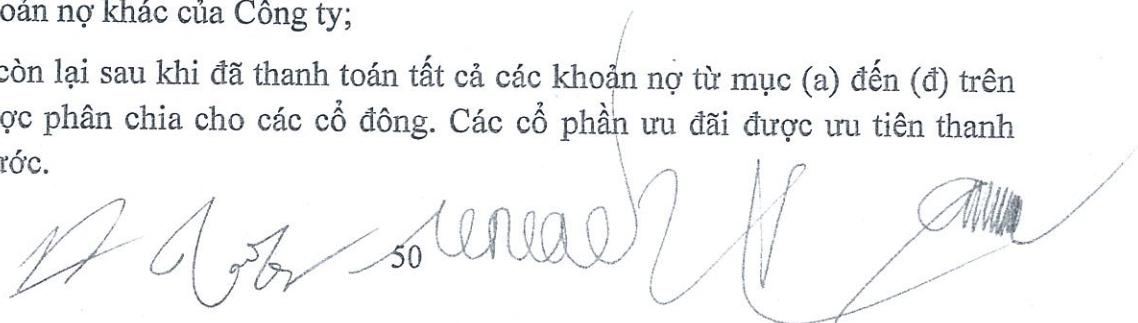 oản nợ khác của Công ty;
còn lại sau khi đã thanh toán tất cả các khoản nợ từ mục (a) đến (đ) trên
ợc phân chia cho các cổ đông. Các cổ phần ưu đãi được ưu tiên thanh
rớc.
50